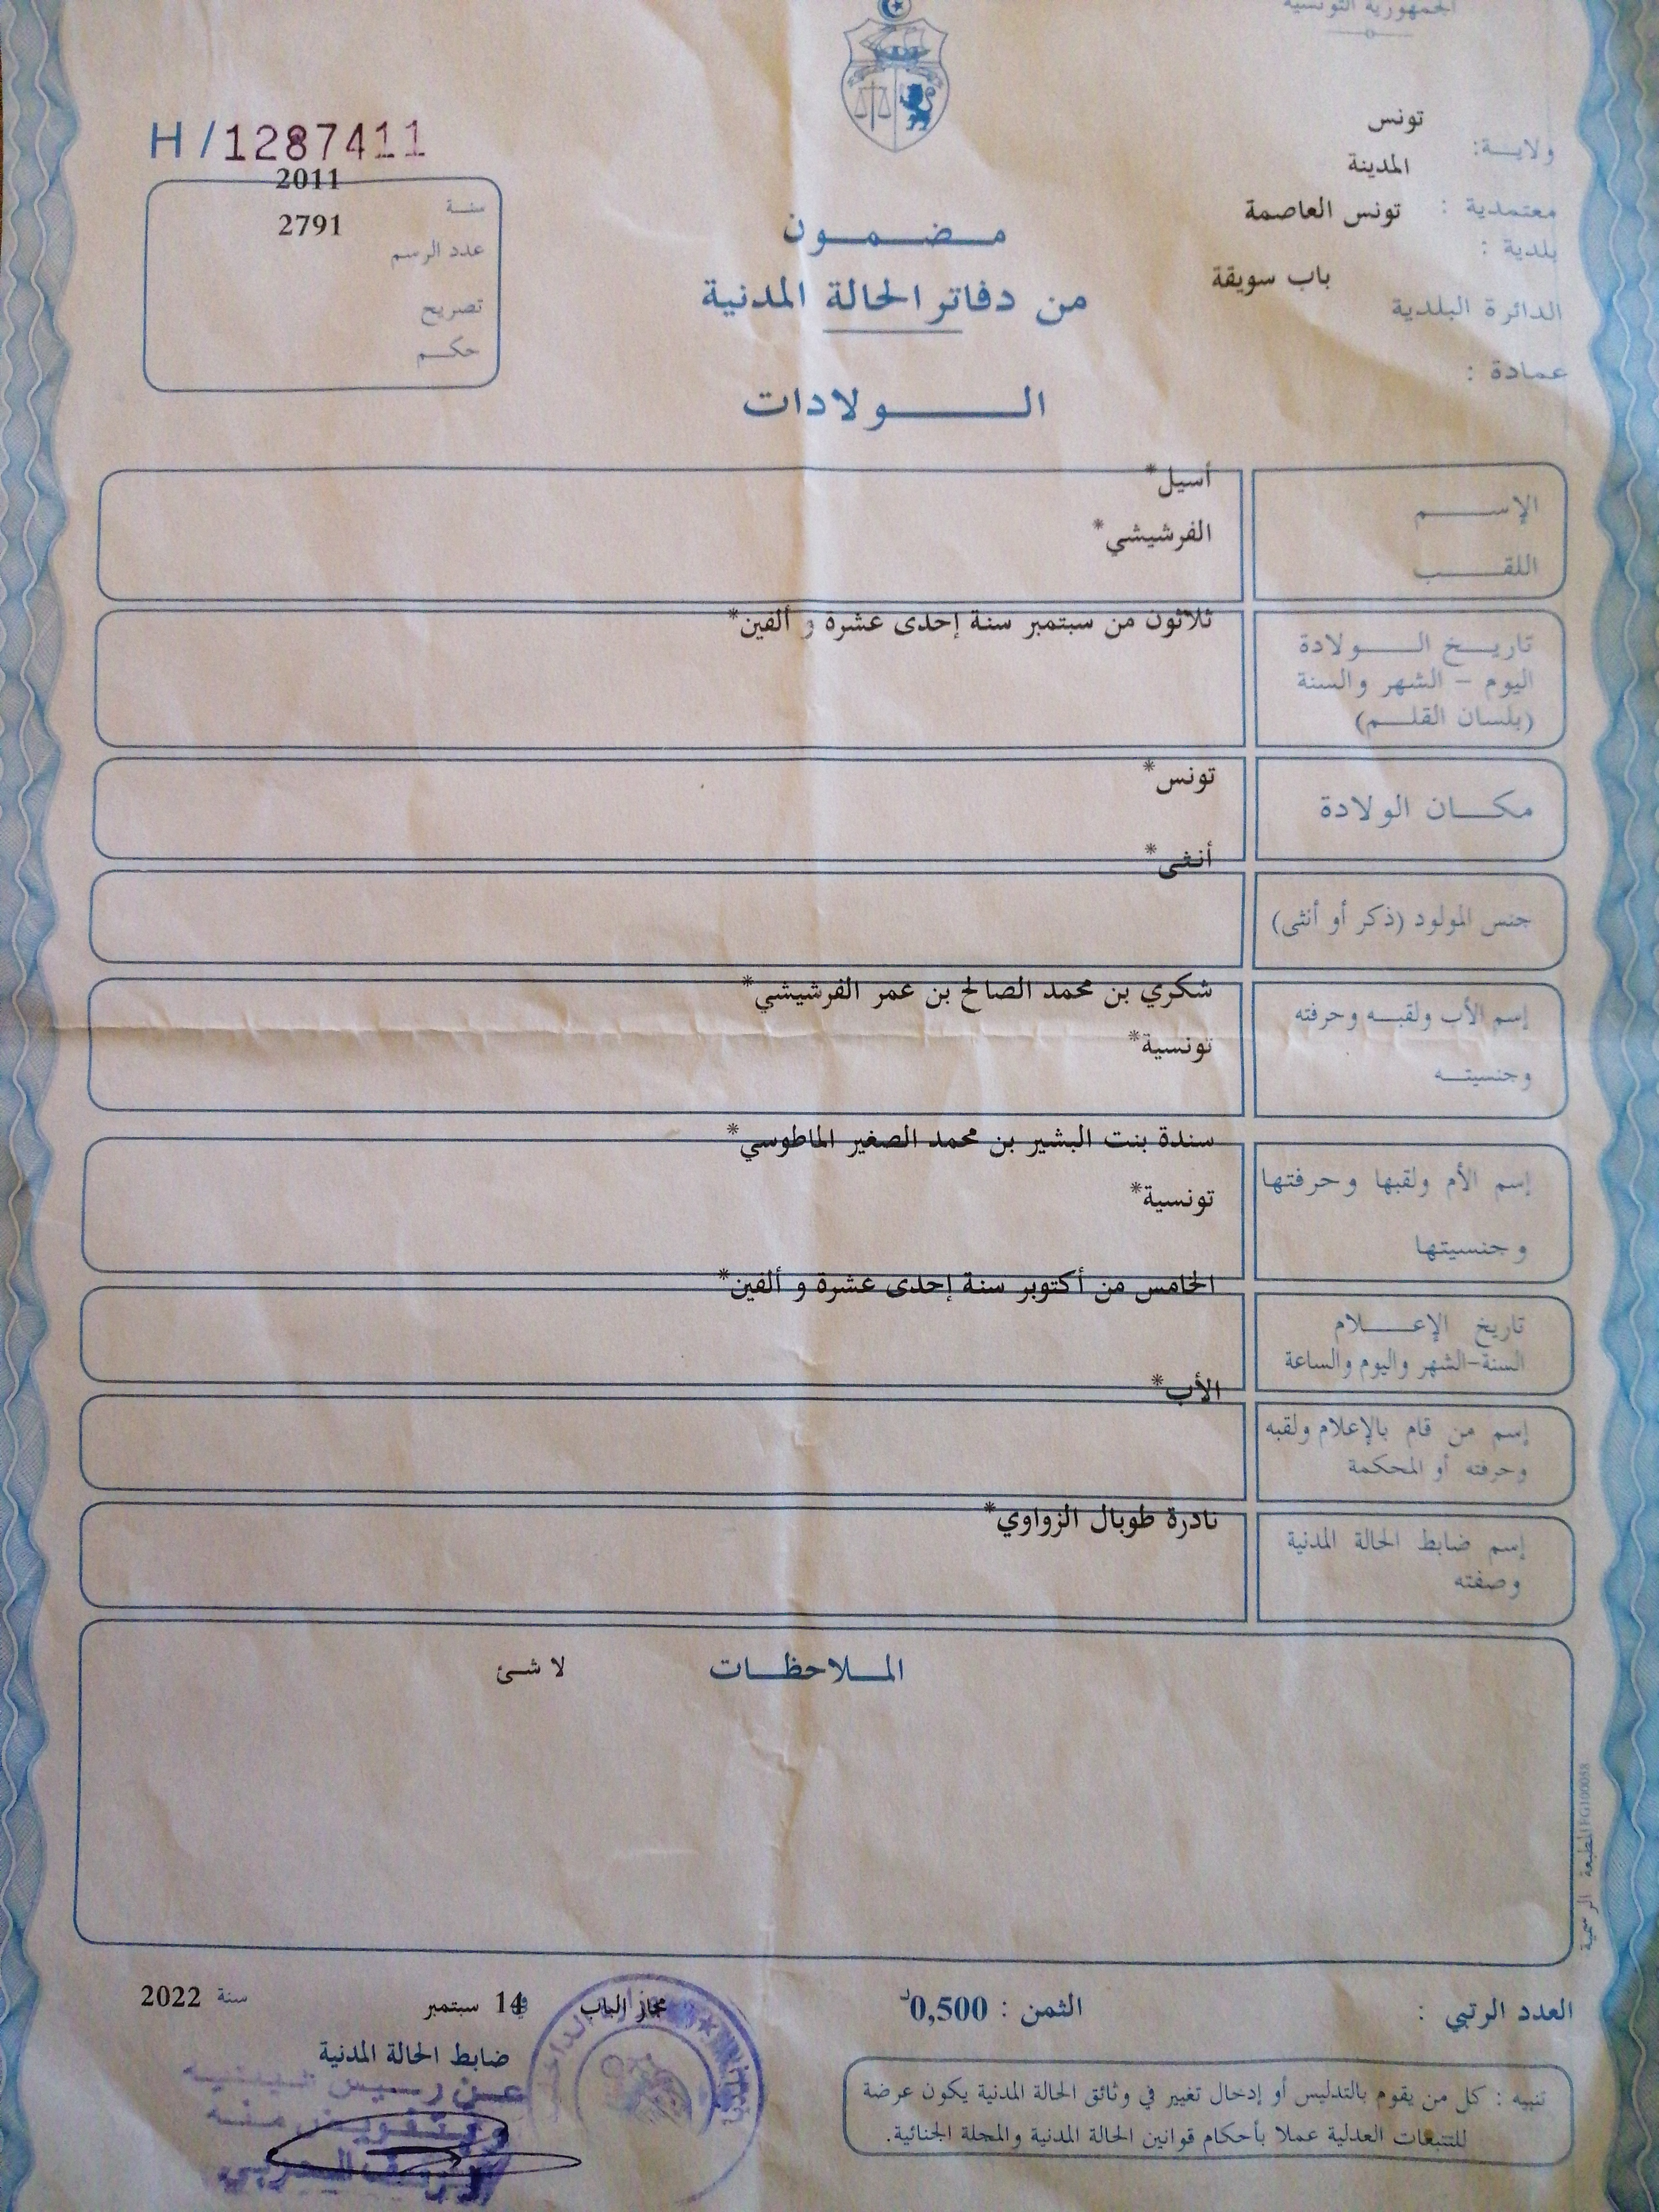 الجمهورية التونسية
تونس
ولايــة:
المدينة
معتمدية :
تونس العاصمة
بلدية :
باب سويقة
الدائرة البلدية
عمادة :
H/1287411
2011
سنـة
2791
عدد الرسم
تصريح
حكـم
مـضـمـون
من دفاتر الحالة المدنية
الـولادات
الإسـم
أسيل*
اللقـب
الفرشيشي*
تاريـخ الـولادة
اليوم – الشهر والسنة
(بلسان القلـم)
ثلاثون من سبتمبر سنة إحدى عشرة و ألفين*
مكـان الولادة
تونس*
جنس المولود (ذكر أو أنثى)
أنثى*
إسم الأب ولقبـه وحرفته
وجنسيتـه
شكري بن محمد الصالح بن عمر الفرشيشي*
تونسية*
إسم الأم ولقبها وحرفتها
وجنسيتها
سندة بنت البشير بن محمد الصغير الماطوسي*
تونسية*
تاريخ الإعـلام
السنة-الشهر واليوم والساعة
الخامس من أكتوبر سنة إحدى عشرة و ألفين*
إسم من قام بالإعلام ولقبه
وحرفته أو المحكمة
الأب*
إسم ضابط الحالة المدنية
وصفته
نادرة طوبال الزواوي*
المـلاحظـات
لا شئ
المطبعة الرسمية
العدد الرتبي :
الثمن : 0,500د
مجاز الباب في 14 سبتمبر سنة 2022
ضابط الحالة المدنية
عـن رئـيس البلديـة
وبتفويـض منـه
تنبيه : كل من يقوم بالتدليس أو إدخال تغيير في وثائق الحالة المدنية يكون عرضة
للتتبعات العدلية عملا بأحكام قوانين الحالة المدنية والمجلة الجنائية.